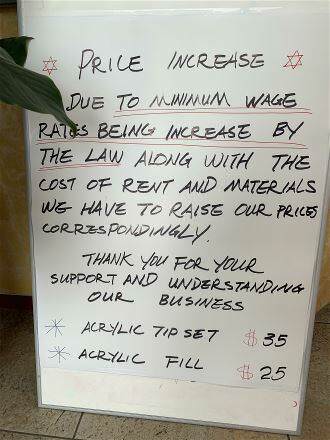 PRICE INCREASE
DUE TO MINIMUM WAGE
RATES BEING INCREASE BY
THE LAW ALONG WITH THE
COST OF RENT AND MATERIALS
WE HAVE TO RAISE OUR PRICES
CORRESPONDINGLY.
THANK YOU FOR YOUR
SUPPORT AND UNDERSTANDING
OUR BUSINESS
ACRYLIC TIP SET $35
ACRYLIC FILL $25